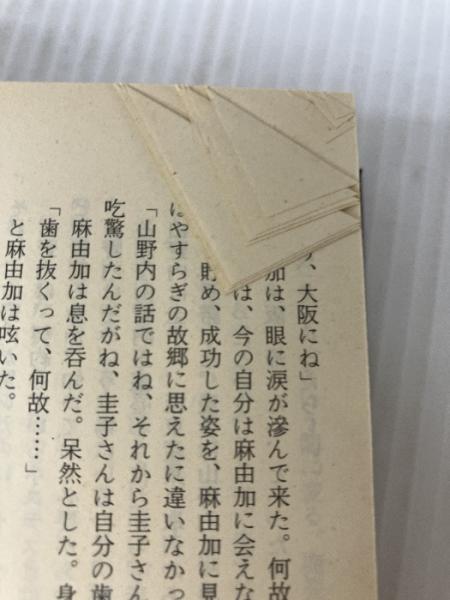 、大阪にね」
加は、眼に涙が滲んで来た。何故
は、今の自分は麻由加に会えな
貯め、成功した姿を、麻由加に見
はやすらぎの故郷に思えたに違いなかっ
「山野内の話ではね、それから圭子さん
吃驚したんだがね、圭子さんは自分の歯
麻由加は息を呑んだ。呆然とした。身
「歯を抜くって、何故……」
と麻由加は呟いた。